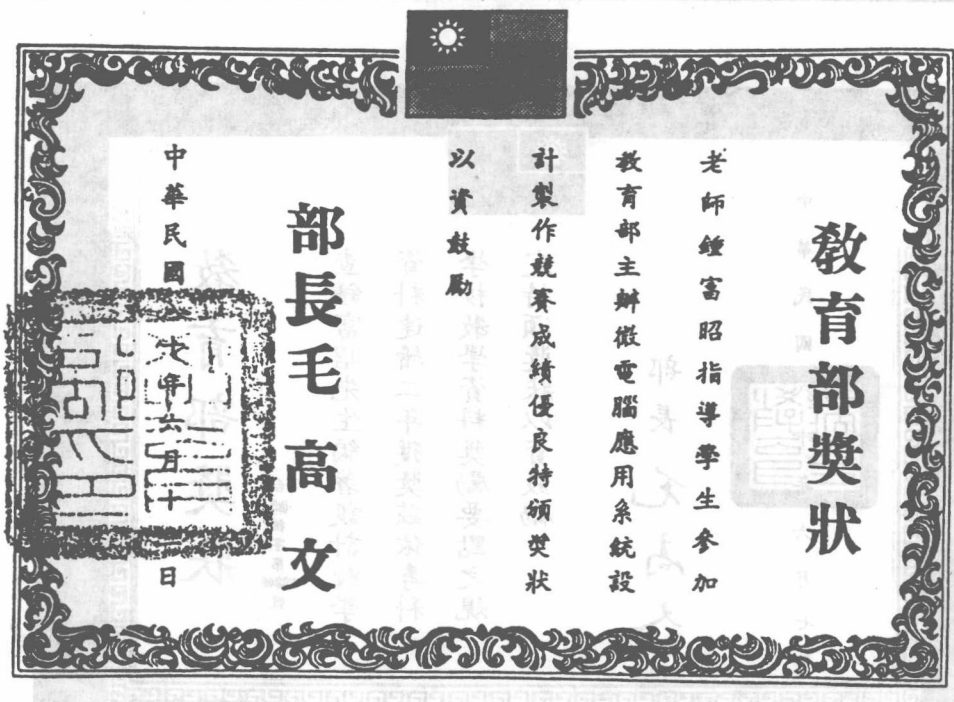 教育部獎狀
老師鍾富昭指導學生參加
教育部主辦微電腦應用系統設
計製作競賽成績優良特頒獎狀
以資鼓勵
部長毛高文
中華民國 七年六月二十二日